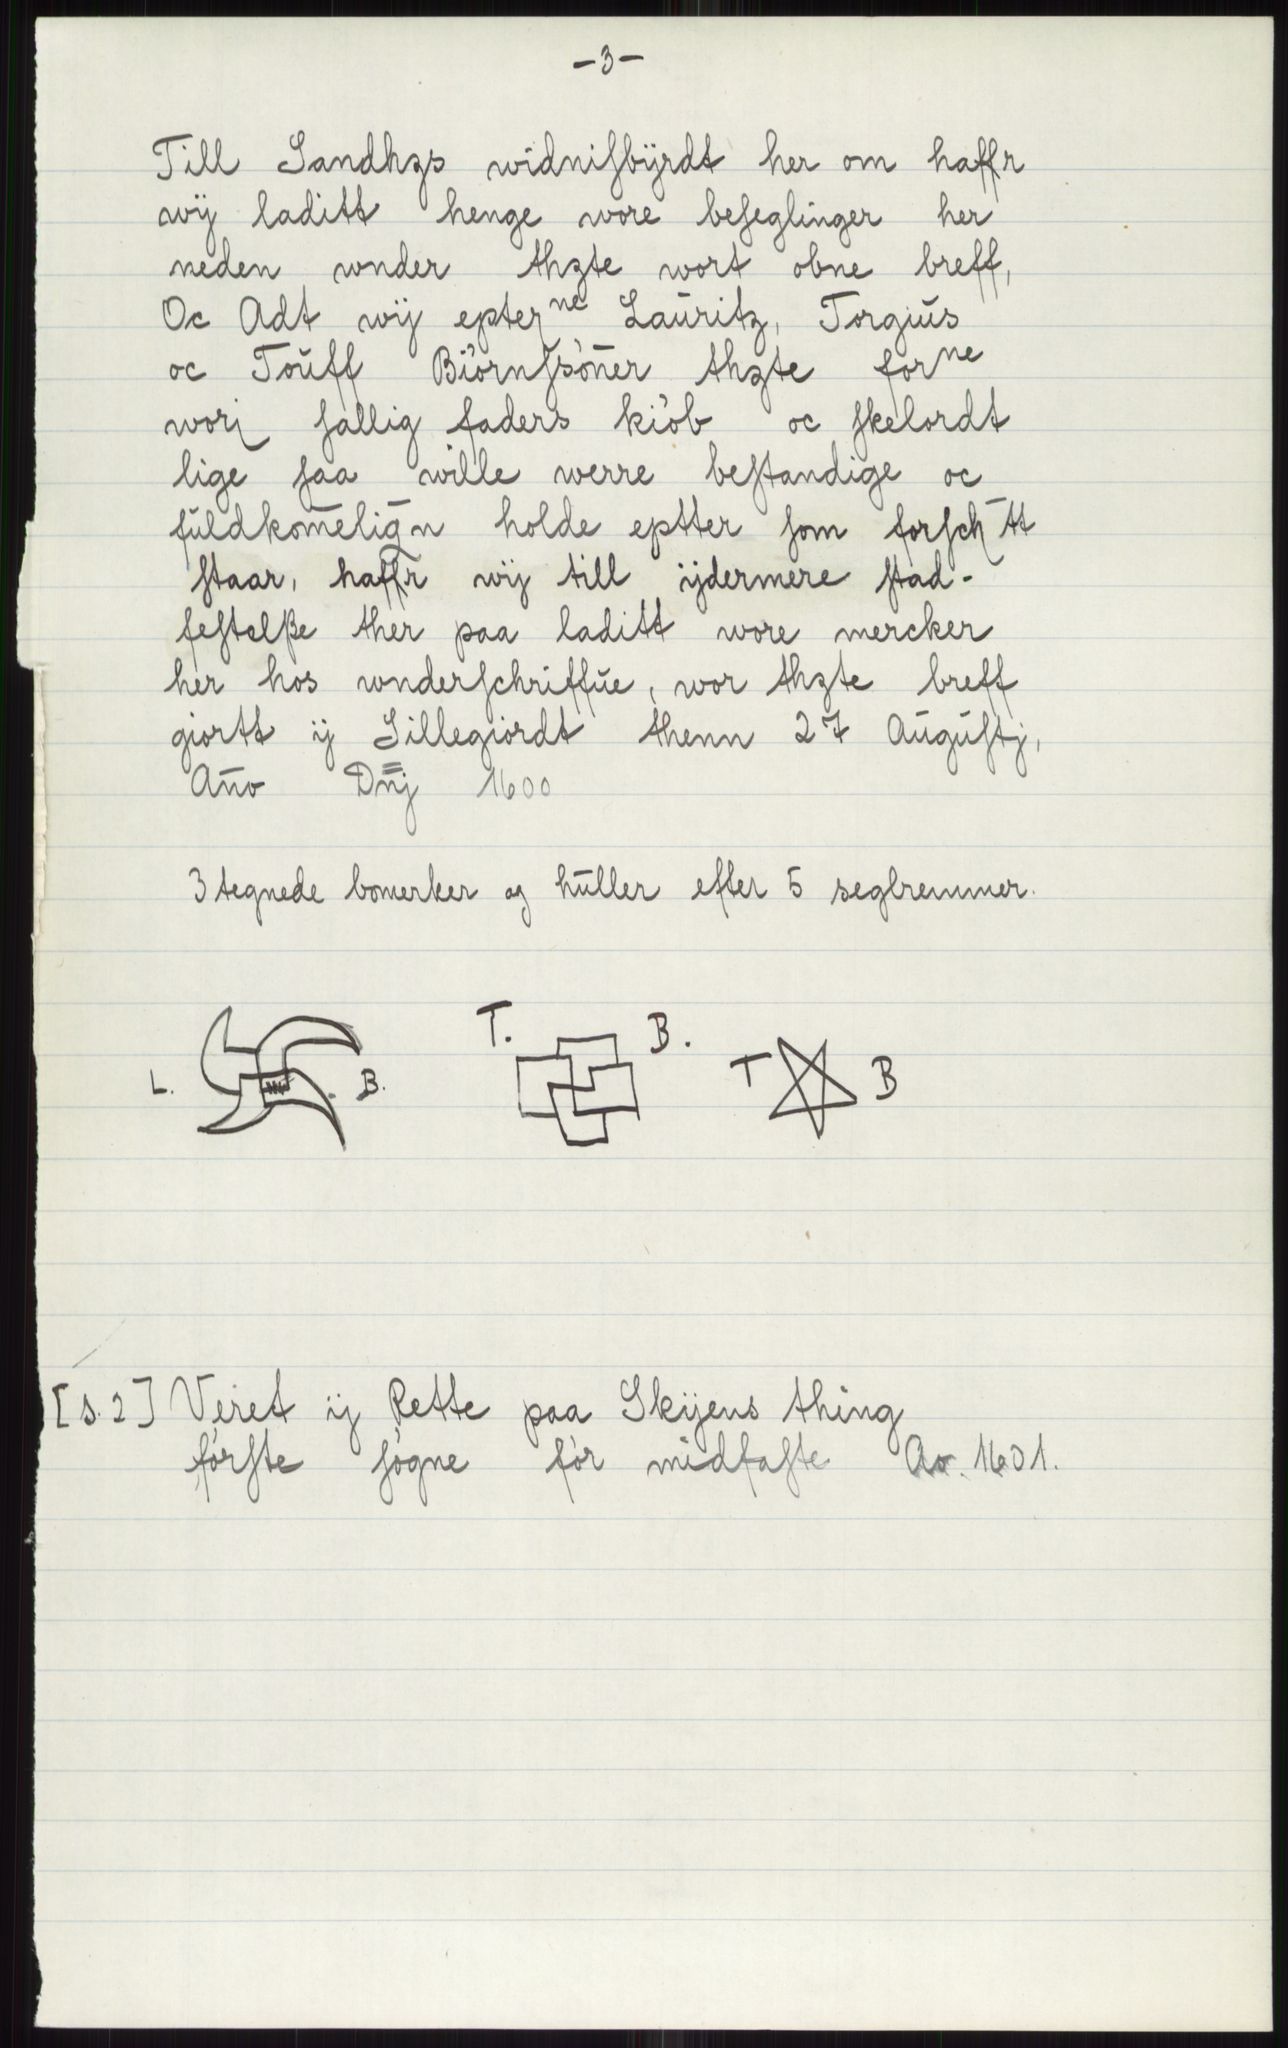 -3-
Till Sandhzs widnisbÿrdt her om haffr
wÿ laditt henge wore beseglinger her
neden wnder thzte wort obne breff,
Oc Adt wÿ epterne Lauritz, Torgius
oc Touff Biörnssöner thzte forne
worj sallig faders kiöb oc skelordt
lige saa wille werre bestandige oc
fuldkom̄eliḡn holde eptter som forsch̄tt
staar, haffr wÿ till ÿdermere stad-
festelße ther paa laditt wore mercker
her hos wnderschriffue, wor thzte breff
giortt ÿ Sillegiordt thenn 27 Augustj,
An̄o Dn̄j 1600
3 tegnede bomerker og huller efter 5 seglremmer.
L. B.
T. B.
T B
[s. 2] Veret ÿ Rette paa Skÿens thing
förste sögne för midfaste Ao. 1601.